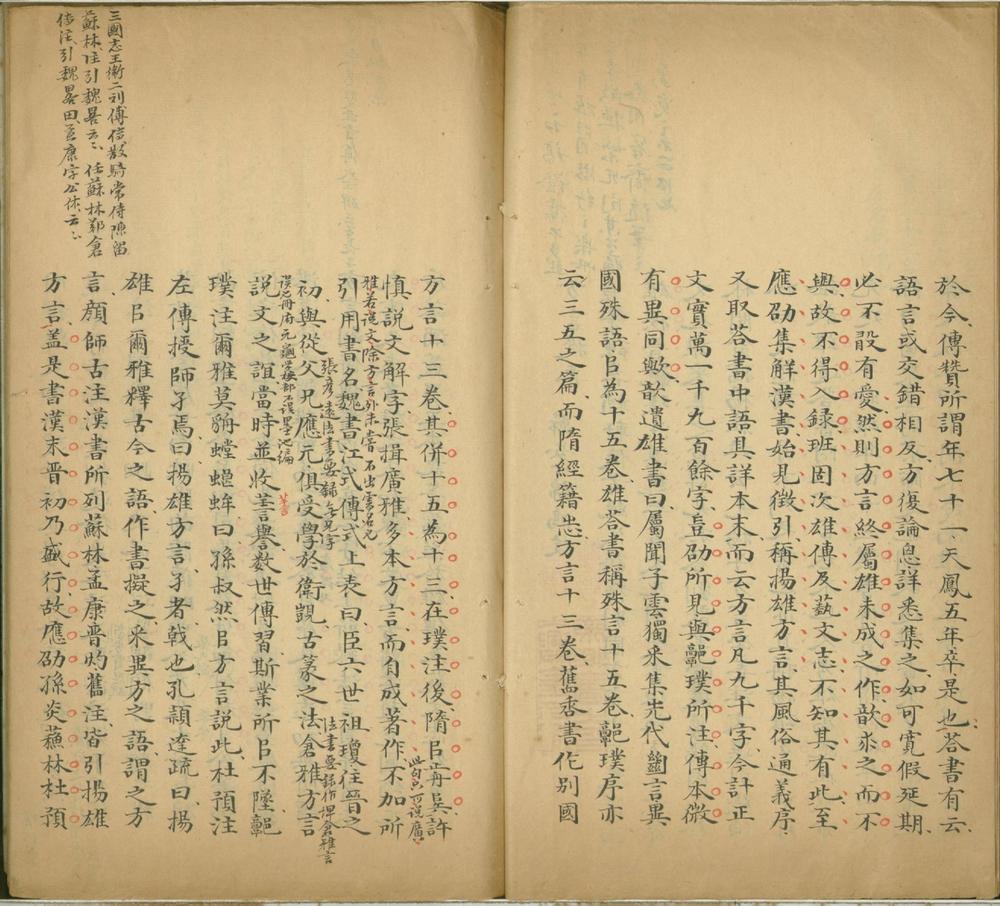 於今傳贊所謂年七十一天鳳五年卒是也荅書有云
語言或交錯相反方復論息詳悉集之如可寬假延期
必不敢有愛然則方言終屬雄未成之作歆求之而不
與故不得入録班固次雄傳及蓺文志不知其有此至
應劭集解漢書始見徵引稱揚雄方言其風俗通義序
又取荅書中語具詳本末而云方言凡九千字今計正
文實萬一千九百餘字豈劭所見與郭璞所注傳本微
有異同歟歆遺雄書曰屬聞子雲獨采集先代絶言異
國殊語㠯為十五卷雄荅書稱殊言十五卷郭璞序亦
云三五之篇而隋經籍志方言十三卷舊唐書作別國
方言十三卷其併十五為十三在璞注後隋㠯前矣許
慎説文解字張揖廣雅多本方言而自成著作不加所
此句只可説廣
雅若説文除方言外未嘗不出書名也
引用書名魏書江式傳式上表曰臣六世祖瓊往晉之
初與從父兄應元俱受學於衛覬古篆之法倉雅方言
説文之誼當時並收善譽數世傳習斯業所㠯不墜郭
璞注爾雅莫貈蟷蜋蛑曰孫叔然㠯方言説此杜預注
左傳授師孑焉曰揚雄方言孑者戟也孔穎達疏曰揚
雄㠯爾雅釋古今之語作書擬之采異方之語謂之方
言顔師古注漢書所列蘇林孟康晉灼舊注皆引揚雄
方言蓋是書漢末晉初乃盛行故應劭孫炎蘇林杜預
三國志王衛二劉傅傳散騎常侍陳留
蘇林注引魏畧云云